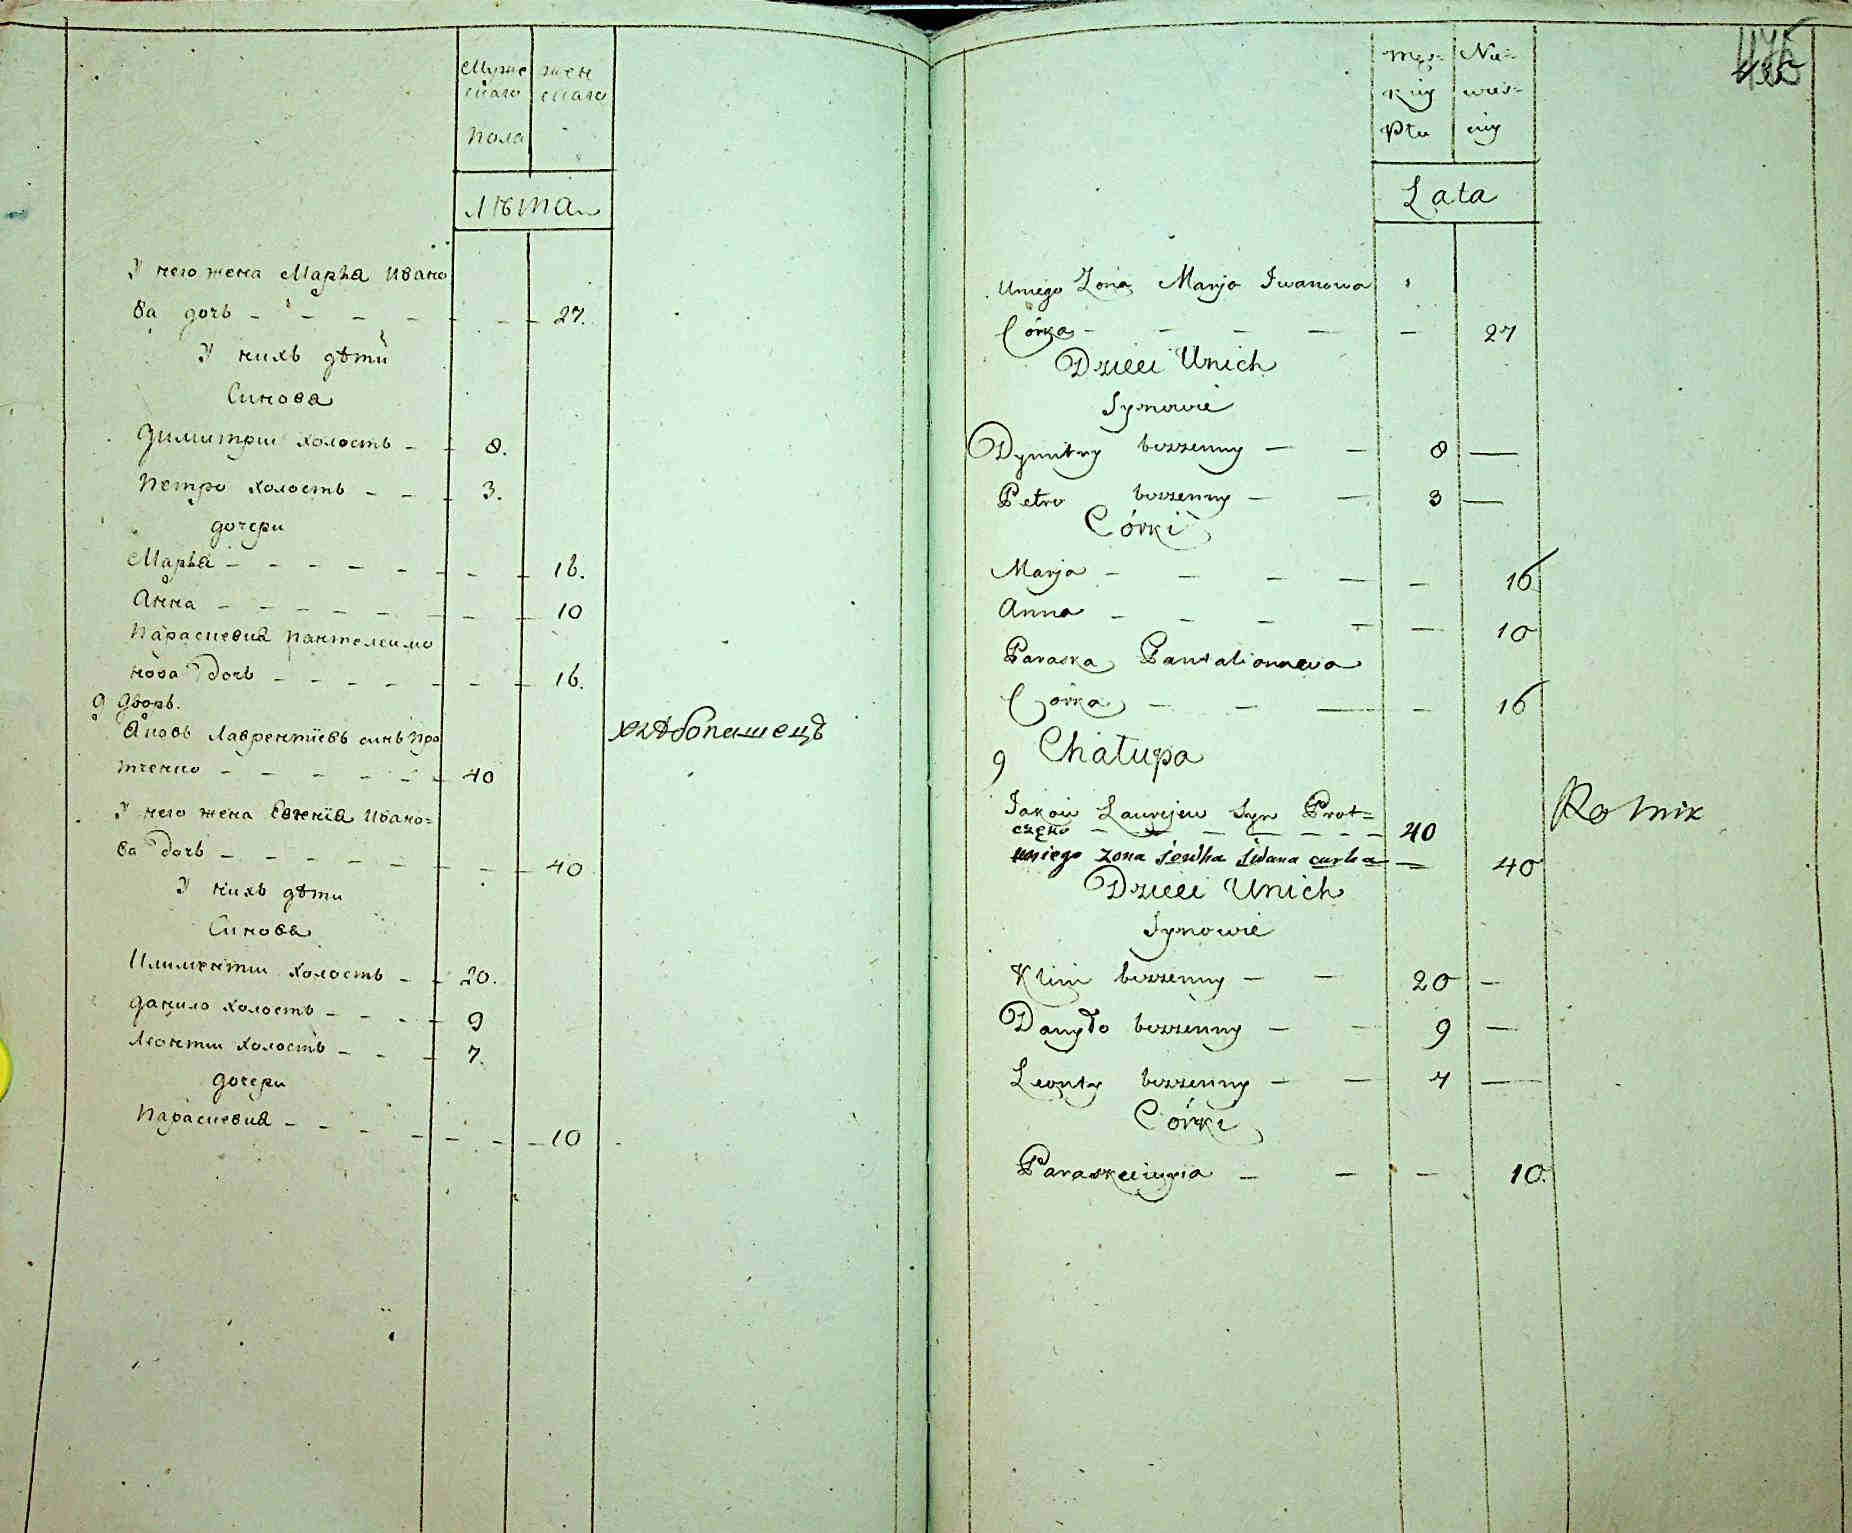 Муже
скаго
Пола
жен
скаго
лѣта
У него жена Марья Ивано
ва дочь - - - - - - 27.
У нихъ дѣти
Синовя
Димитрии холостъ - - 8.
Петро холостъ - - - 3.
дочери
Марья - - - - - - - 16.
Анна - - - - - - - 10
Параскевия Пантелеимо
нова дочь - - - - - - - 16.
9 дворъ.
Яковъ Лаврентіевъ синъ Про
тченко - - - - - - 40
хлѣбопашецъ
У него жена Евгенія Ивано=
ва дочь - - - - - - - - 40
У нихъ дѣти
Синовя
Климентии холостъ - - 20.
данило холостъ - - - - 9
Леонтии холостъ - - - 7.
дочери
Параскевия - - - - - - - 10
Męz-
kiey
Płu
Nie-
wies-
ciey
Lata
Uniego Zona Marja Iwanowa
Córka - - - - - 27
Dzieci Unich
Synowie
Dymitry bezzenny - - 8 -
Petro bezzenny - - 3 -
Córki
Marja - - - - - 16
Anna - - - - - 10
Paraska Pantalionowa
Córka - - - - 16
9 Chałupa
Jakow Lawrejew Syn Prot=
częko - - - - - - - 40
Rolnik
uniego zona Jewha Iwana curka - 40
Dzieci Unich
Synowie
Klim bezzenny - - 20 -
Danyło bezzenny - - 9 -
Leonty bezzenny - - 7 -
Córki
Paraskeiwia - - - 10.